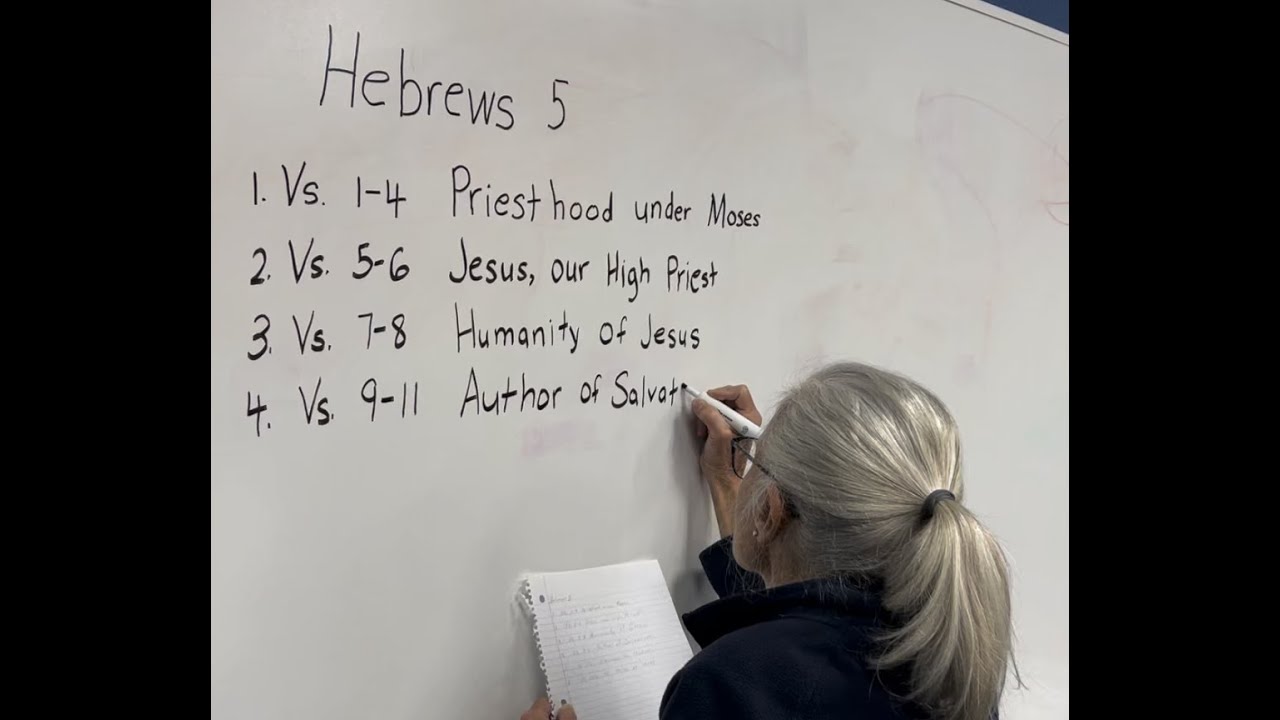 Hebrews 5
1. Vs. 1-4 Priesthood under Moses
2. Vs. 5-6 Jesus, our High Priest
3. Vs. 7-8 Humanity of Jesus
4. Vs. 9-11 Author of Salvat